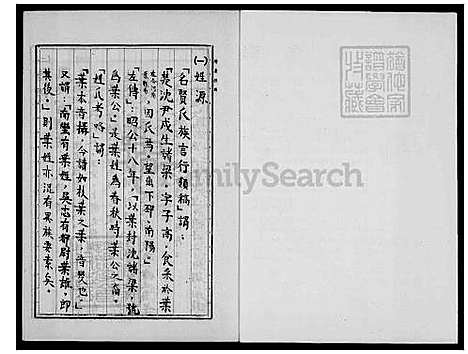 (一)姓源
「名賢氏族言行類稿」謂:
「楚沈尹戌生諸梁,字子高,食采於葉
因氏焉,望角下邳、南陽。」
左傳:昭公十八年,「以葉封沈諸梁,號
為葉公」是葉姓為春秋時葉公之裔。
「姓氏考略」謂:
「葉本音攝,今讀如枝葉之葉,音變也。」
又謂:「南蠻有葉姓,吳志有都尉葉雄,即
其後。」則葉姓亦混有異族要素矣。
FamilySearch